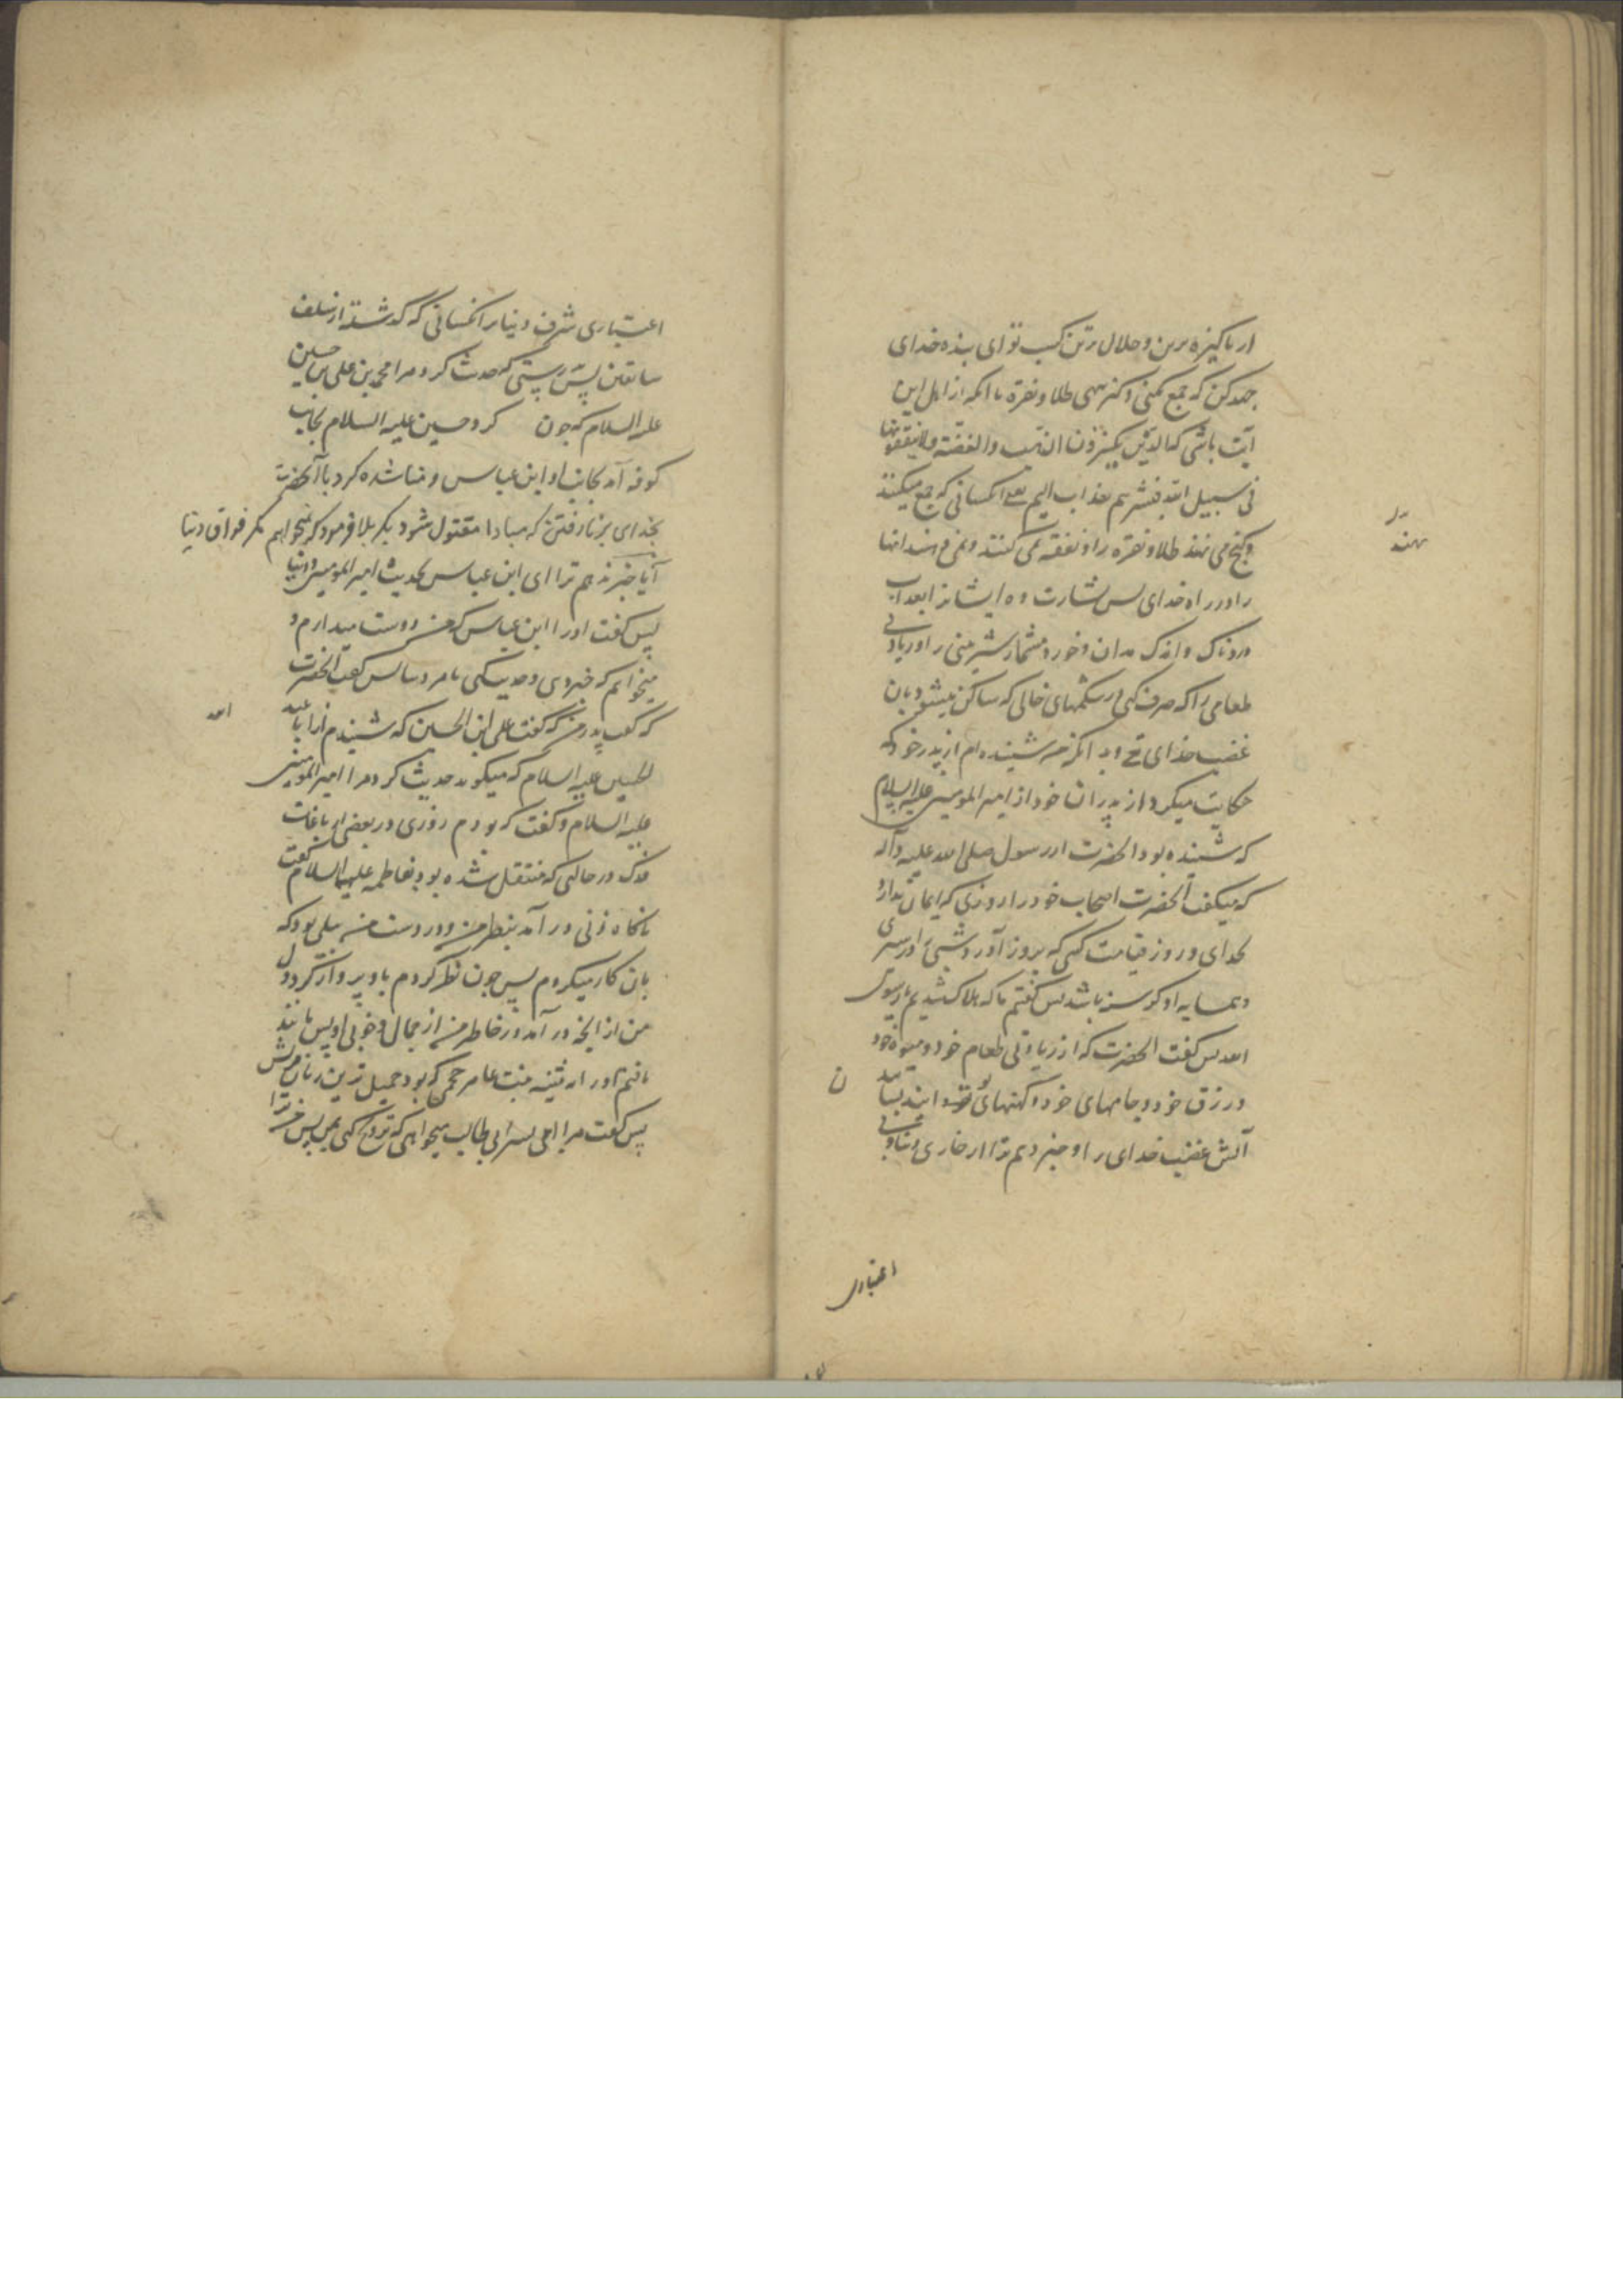 از پاکیزه ترین و حلال ترین کسب تو ای بنده خدای
جهد کن که جمع نکنی و کنز ننهی طلا و نقره تا آنکه از اهل این
آیت باشی که الذین یکنزون الذهب والفضة ولا ینفقونها
فی سبیل الله فبشرهم بعذاب الیم یعنی آنکسانی که جمع میکنند
و گنج می نهند طلا و نقره را و نفقه نمی کنند و نمی دهند آنها
را در راه خدای پس بشارت ده ایشانرا بعذاب
دردناک و اندک مدان و خورد مشمار شیرینی را و زیادتی
طعامی را که صرف کنی در شکمهای خالی که ساکن میشود بان
غضب خدای که من شنیده ام از پدر خود که
حکایت میکرد از پدران خود از امیر المومنین علیه السلام
که شنیده بود آنحضرت از رسول صلی الله علیه وآله
که میگفت آنحضرت اصحاب خود را روزی که ایمان ندارد
بخدای و روز قیامت کسی که بروز آورد شبی را در سیری
و همسایه او گرسنه باشد پس گفتم ما که هلاک شدیم یا رسول
الله پس گفت آنحضرت که از زیادتی طعام خود و میوه خود
و رزق خود و جامهای خود و کهنهای خود بنشانید
آتش غضب خدای را و خبر دهم ترا از خواری دنیا و بی
اعتباری
اعتباری شرف دنیا بر آنکسانی که گذشته از سلف
سابقین پس بدرستی که حدیث کرد مرا محمد بن علی بن حسین
علیه السلام که چون کرد حسین علیه السلام بجانب
کوفه آمد بجانب او ابن عباس و مناشده کرد با آنحضرت
بخدای بر نارفتن که مبادا مقتول شود بکربلا فرمود که نمیخواهم مگر فراق دنیا
آیا خبر ندهم ترا ای ابن عباس بحدیث امیر المومنین و دنیا
پس گفت او را ابن عباس که من دوست میدارم و
میخواهم که خبر دهی و حدیث کنی ما را پس گفت آنحضرت
که گفت پدر من که گفت علی ابن الحسین که شنیدم از ابا عبد
الله
الحسین علیه السلام که میگوید حدیث کرد مرا امیر المومنین
علیه السلام و گفت که بودم روزی در بعضی از باغات
فدک در حالتی که منتقل شده بود بفاطمه علیها السلام گفت
ناگاه زنی در آمد بنظر من و در دست من بیلی بود که
بان کار میکردم پس چون نظر کردم باو پرواز کرد دل
من از آنچه در آمد در خاطر من از جمال و خوبی او پس مانند
یافتم او را به ثنیه بنت عامر جمحی که بود جمیل ترین زنان قریش
پس گفت مرا ای پسر ابی طالب میخواهی که تزویج کنی بمن پس من ترا